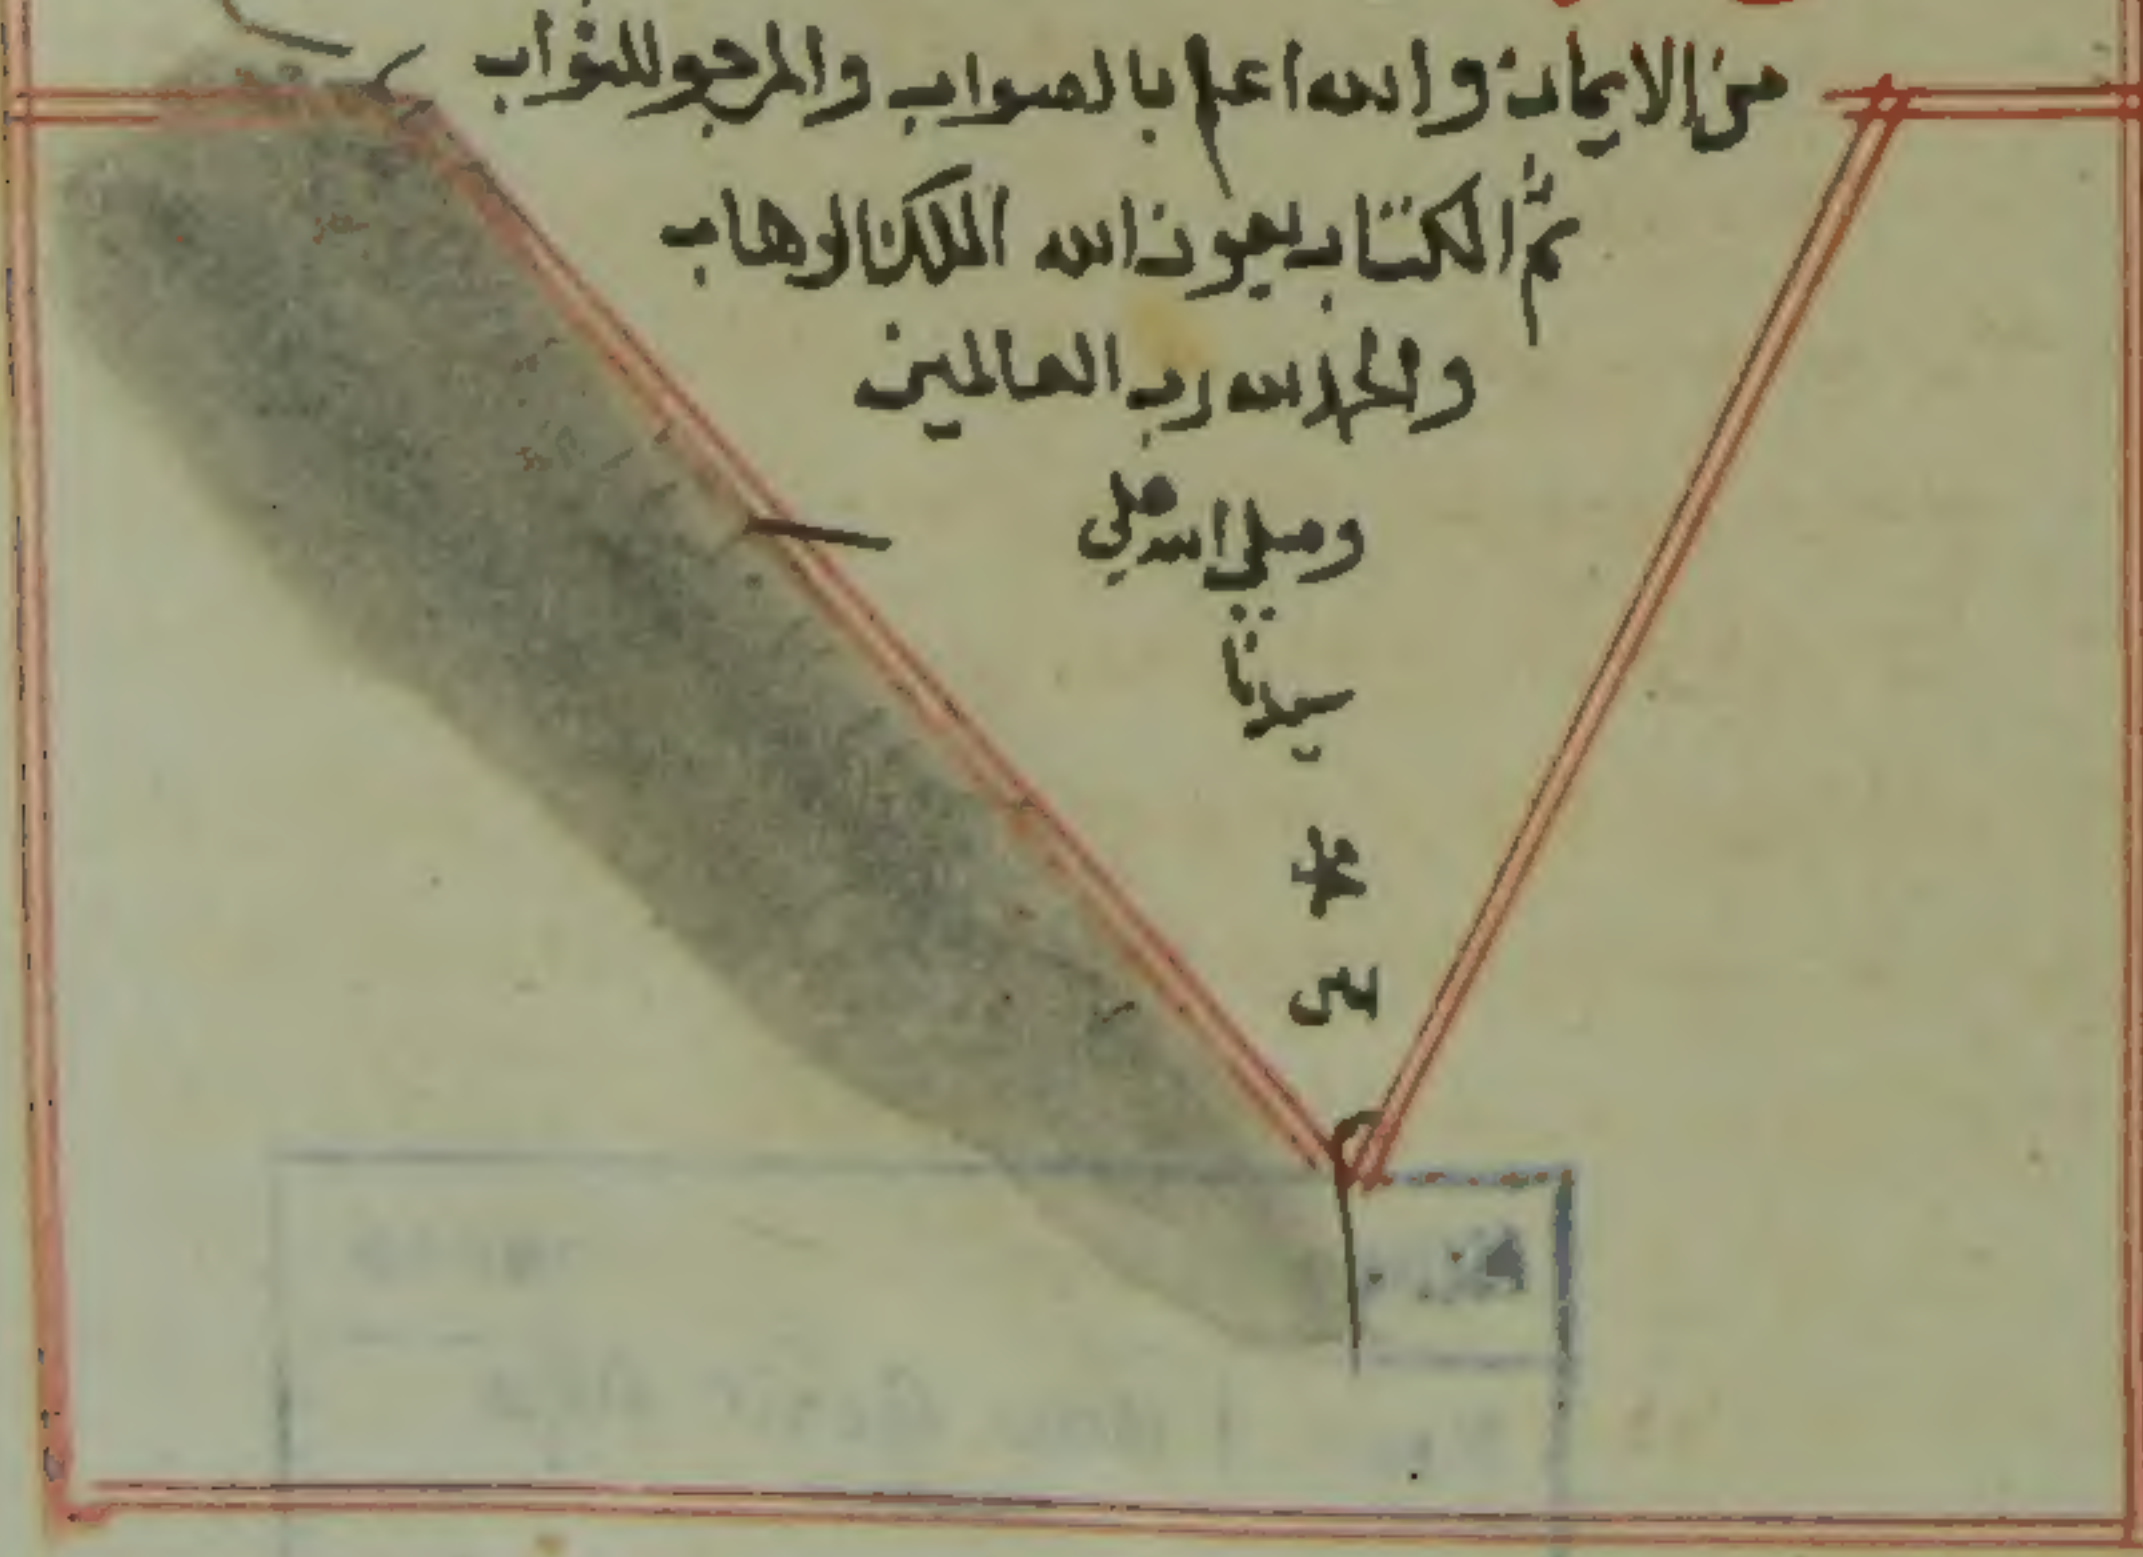 من الايمان والله اعلم بالصواب والمرجو للثواب
تم الكتاب بعون الله الملك الوهاب
والحمد لله رب العالمين
وصلى الله على
سيدنا
محمد
م